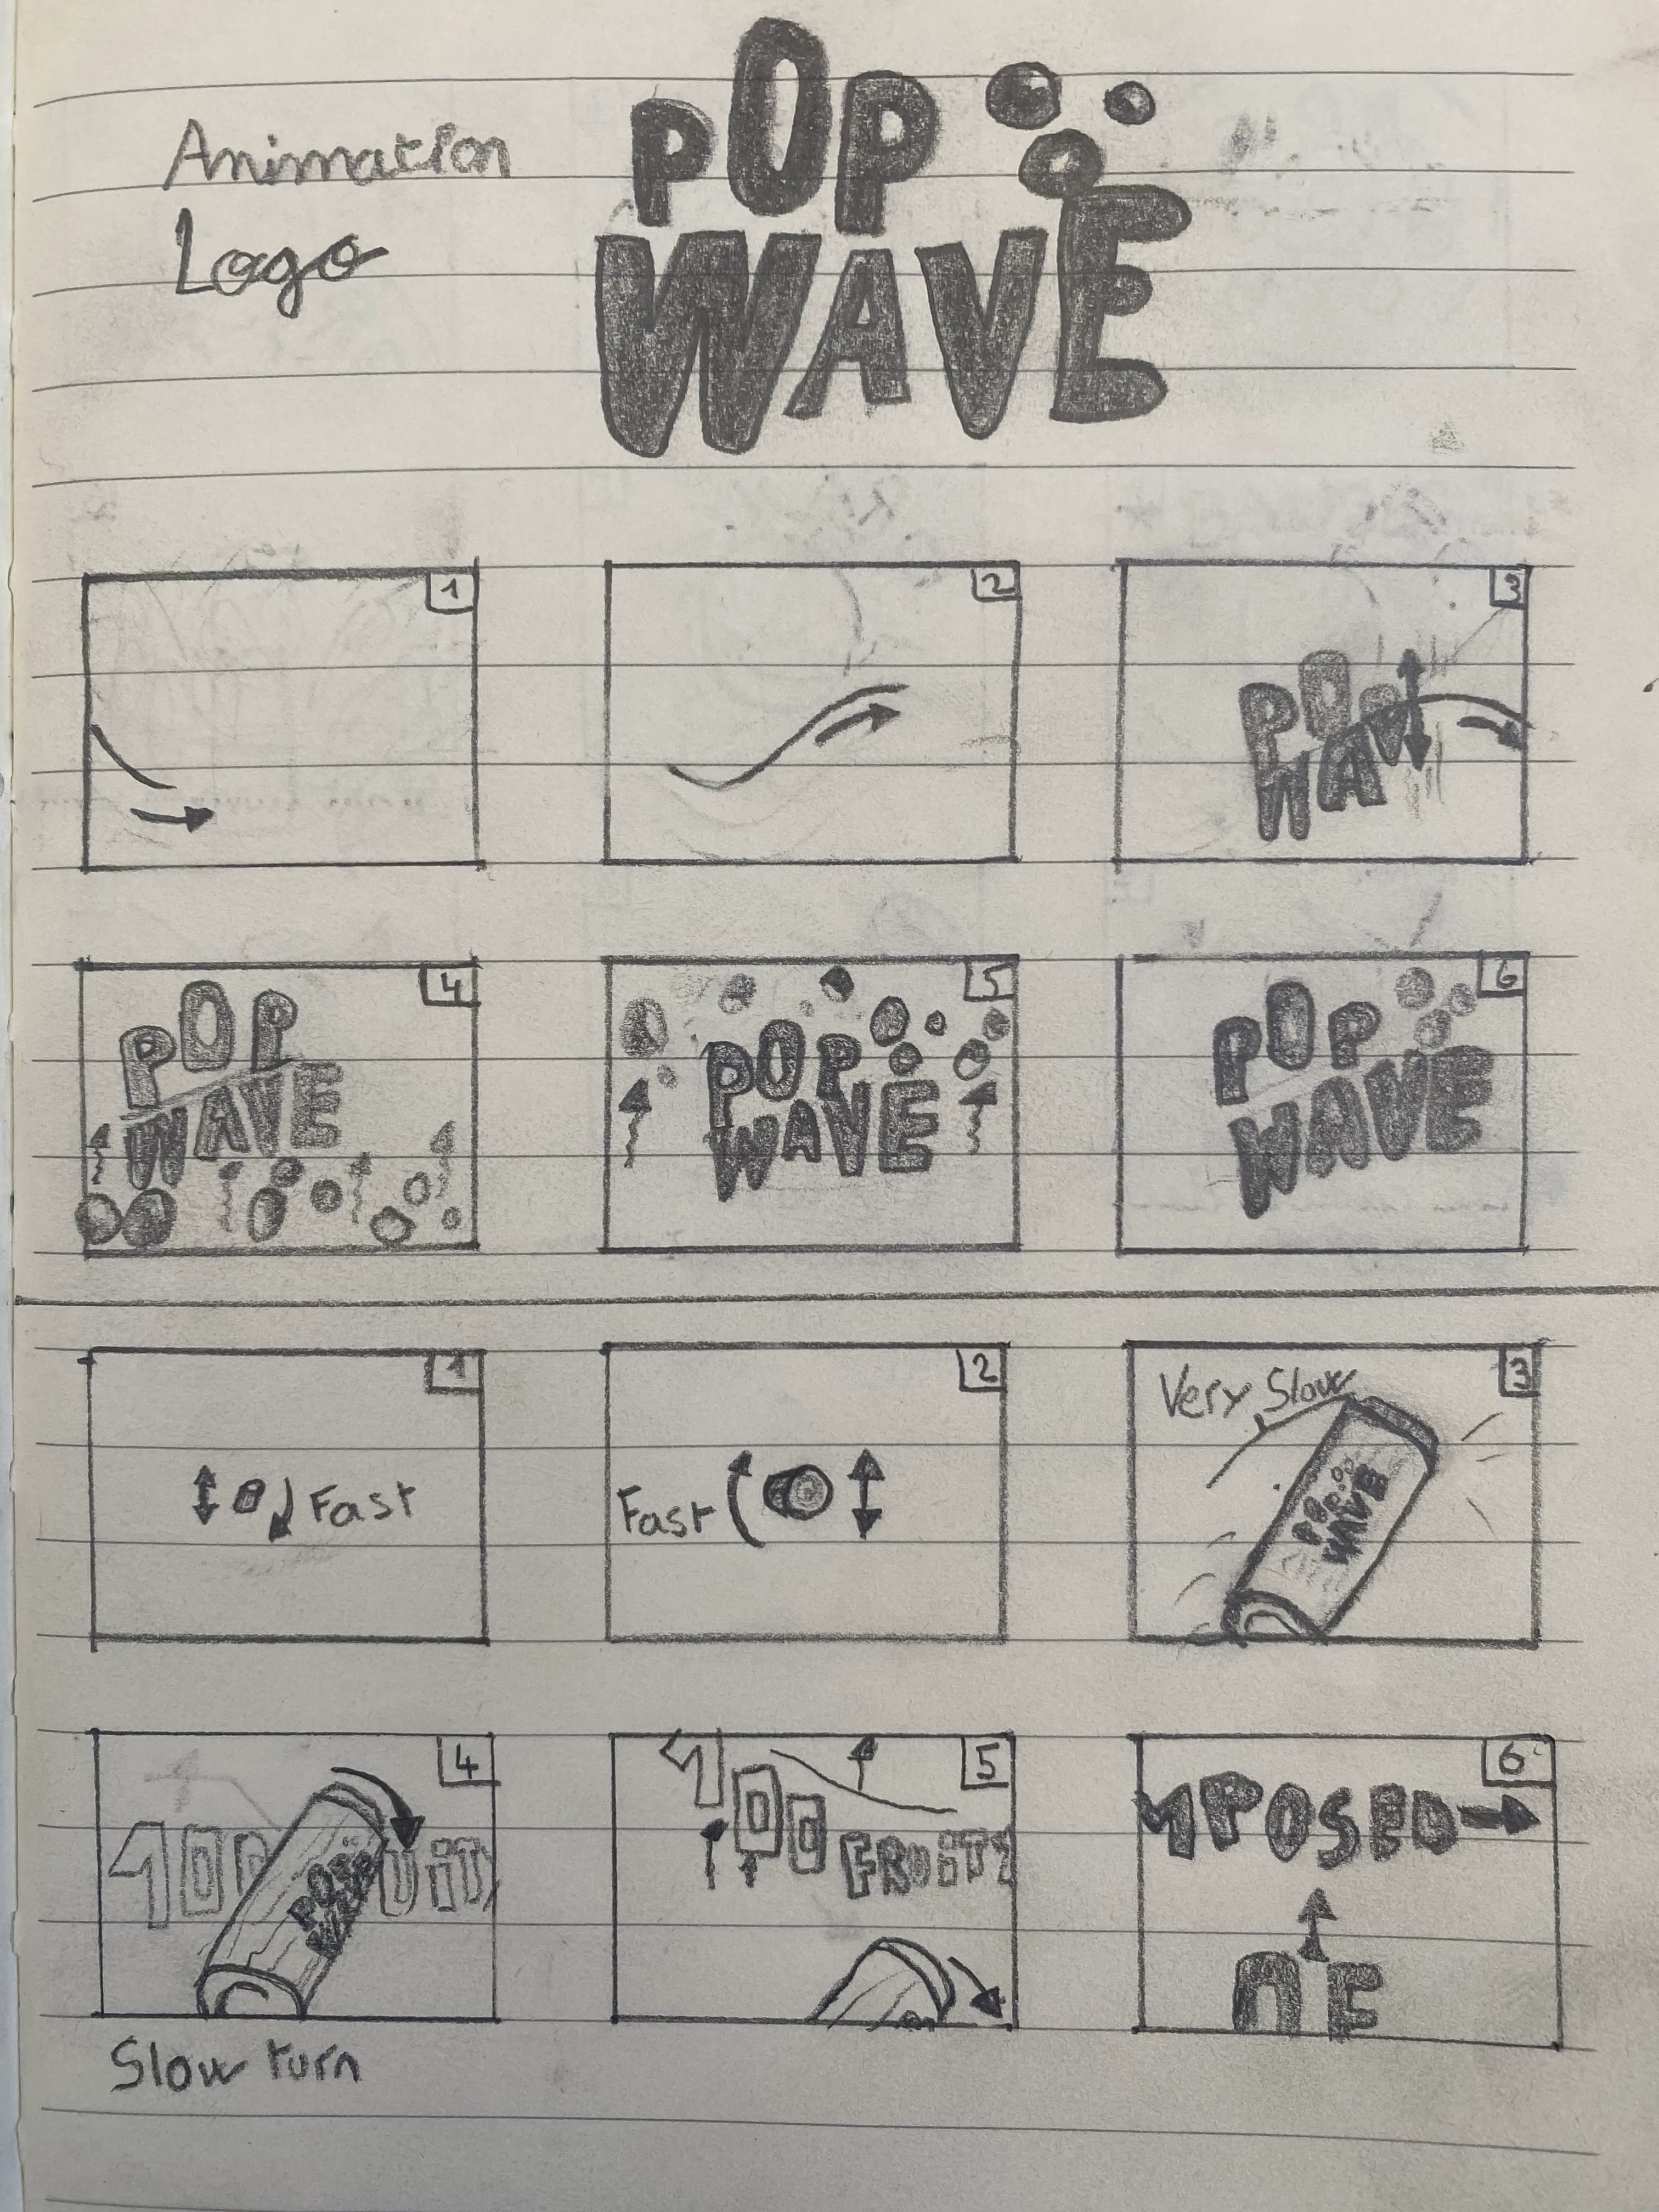 Animation
Logo
POP
WAVE
1
2
3
POP
WAV
4
POP
WAVE
5
POP
WAVE
6
POP
WAVE
1
Fast
2
Fast
3
Very Slow
POP
WAVE
4
POP
WAVE
Slow turn
5
FRUITY
6
MPOSED